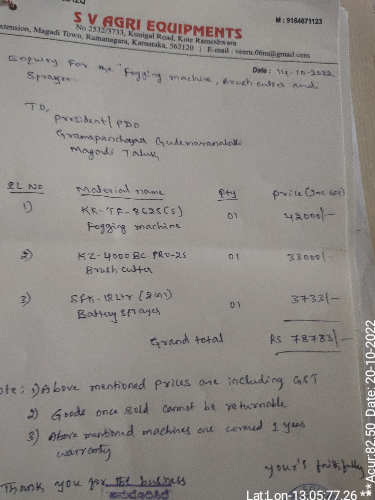 S V AGRI EQUIPMENTS
M : 9164671123
No 2532/3733, Kunigal Road, Kote Rameshwara
extension, Magadi Town, Ramanagara, Karnataka, 562120 | E-mail : veeru.06m@gmail.com
Date : 14-10-2022
Enquiry For the "Fogging machine, Brush cutter and
Sprayer.
TO,
president/PDO
Gramapanchayath
Magadi Taluk
SL NO Material name Qty price (Inc GST)
1) KK-TF-8625(S) 01 42000/-
Fogging machine
2) KZ-4000BC PRO-2S 01 33000/-
Brush cutter
3) SFK-12Ltr (2in1) 01 3733/-
Battery Sprayer
Grand total RS 78733/-
ote : 1) Above mentioned prices are including GST
2) Goods once sold cannot be returnable
3) Above mentioned machines are covered 1 years
warranty
Thank you for the business
your's faithfully
Lat:Lon-13.05:77.26
**Acur:82.50 Date: 20-10-2022